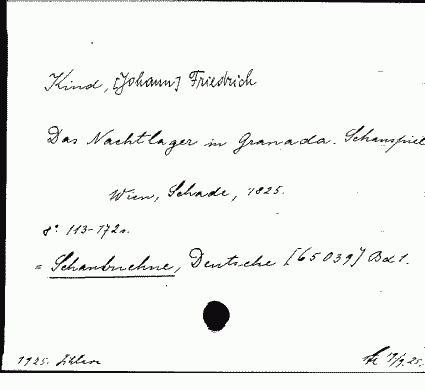 Kind, [Johann] Friedrich
Das Nachtlager in Granada. Schauspiel
Wien, Schade, 1825.
8° 113-172 s.
= Schaubuehne, Deutsche [65039] Bd 1.
1925.